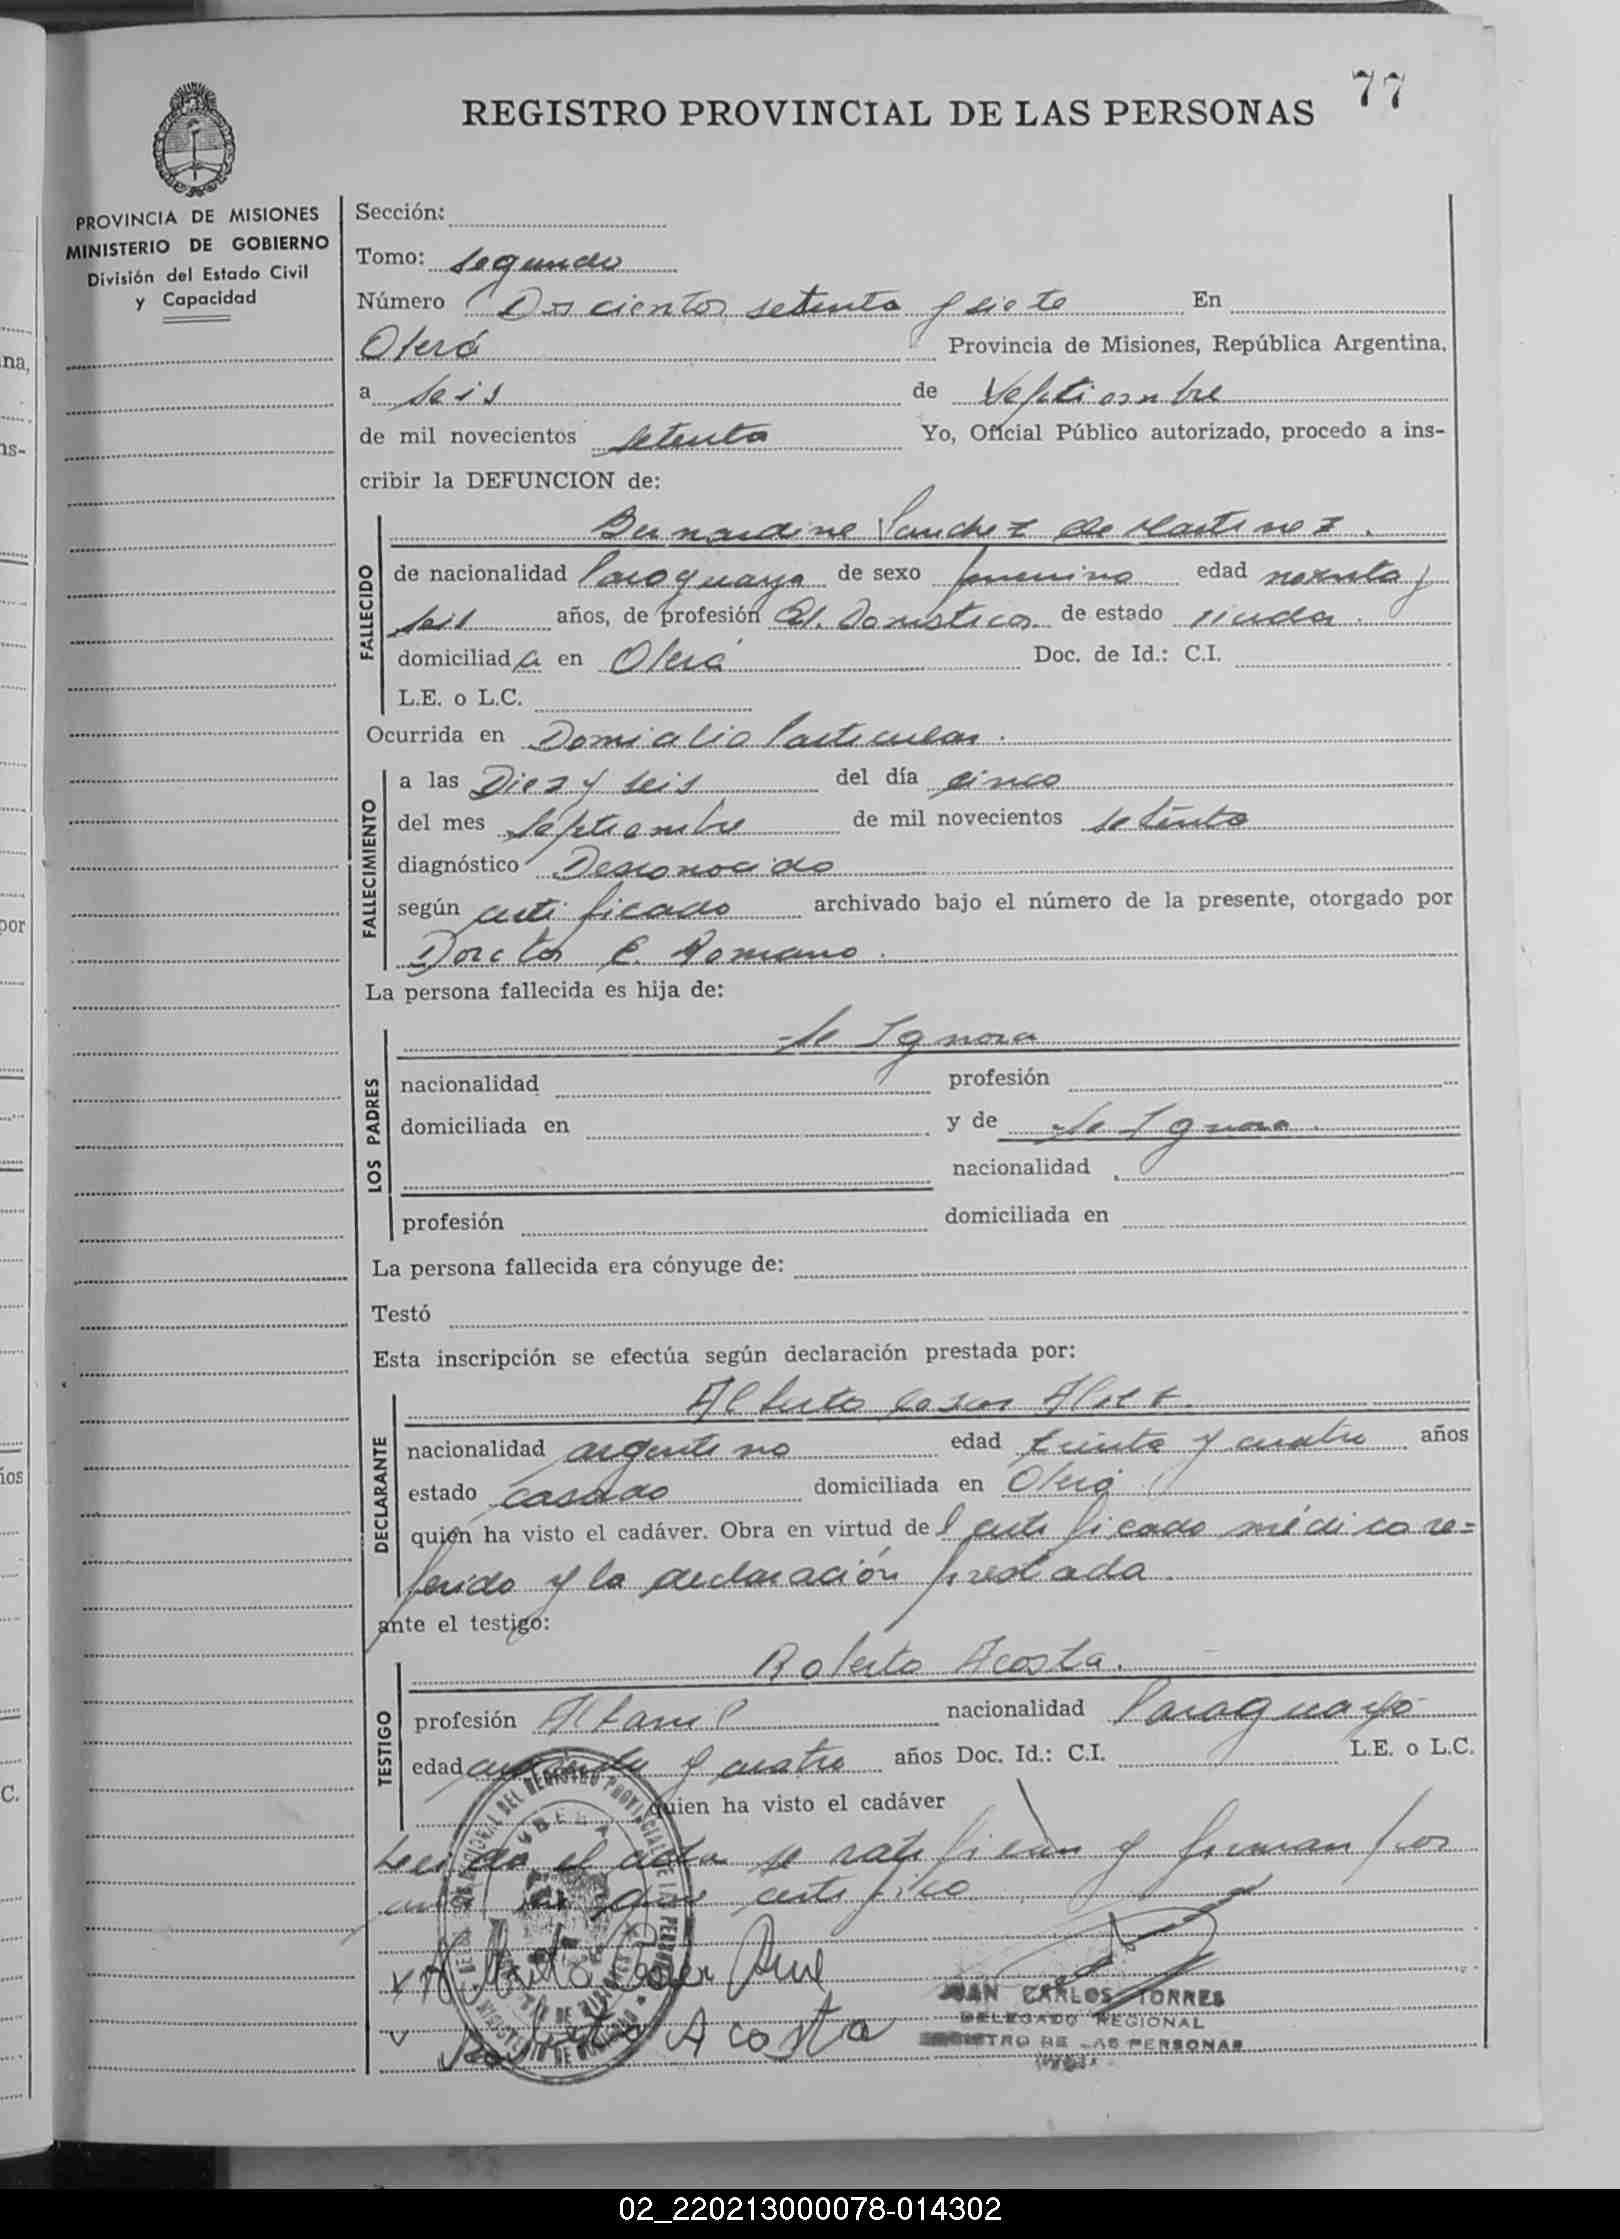 77
REGISTRO PROVINCIAL DE LAS PERSONAS
PROVINCIA DE MISIONES
MINISTERIO DE GOBIERNO
División del Estado Civil
y Capacidad
Sección:
Tomo: segundo
Número Doscientos setenta y siete En
Oberá Provincia de Misiones, República Argentina,
a seis de septiembre
de mil novecientos setenta Yo, Oficial Público autorizado, procedo a ins-
cribir la DEFUNCION de:
FALLECIDO
Bernardine Sanchez de Martinez.
de nacionalidad Paraguaya de sexo femenino edad noventa y
seis años, de profesión Q. Domesticos de estado viuda.
domiciliada en Oberá Doc. de Id.: C.I.
L.E. o L.C.
Ocurrida en Domicilio Particular.
FALLECIMIENTO
a las Diez y seis del día cinco
del mes septiembre de mil novecientos setenta
diagnóstico Desconocido
según certificado archivado bajo el número de la presente, otorgado por
Doctor E. Romano.
La persona fallecida es hija de:
LOS PADRES
Se Ignora
nacionalidad profesión
domiciliada en y de Se Ignora.
nacionalidad
profesión domiciliada en
La persona fallecida era cónyuge de:
Testó
Esta inscripción se efectúa según declaración prestada por:
DECLARANTE
Alberto
nacionalidad argentino edad treinta y cuatro años
estado casado domiciliada en Oberá
quien ha visto el cadáver. Obra en virtud del certificado médico re=
ferido y la declaración prestada.
ante el testigo:
TESTIGO
Roberto Acosta.
profesión Albanil nacionalidad Paraguayo
edad cuarenta y cuatro años Doc. Id.: C.I. L.E. o L.C.
quien ha visto el cadáver
Leida el acta se ratifican y firman por
ante mi que certifico
Alberto
JUAN CARLOS TORRES
DELEGADO REGIONAL
REGISTRO DE LAS PERSONAS
Roberto Acosta
02_220213000078-014302